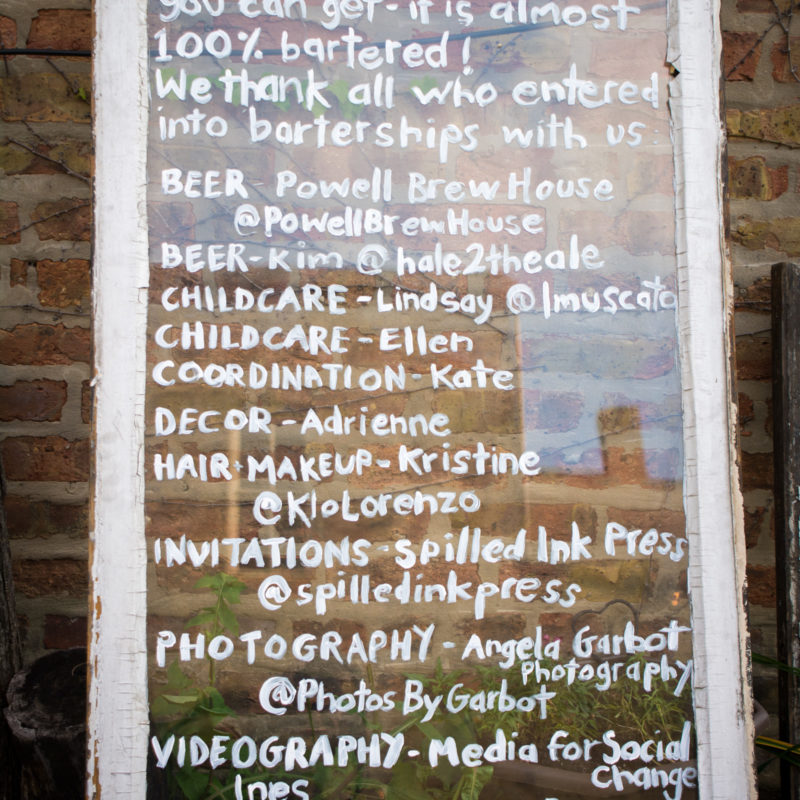 you can get - it is almost
100% bartered!
We thank all who entered
into barterships with us
BEER - Powell Brew House
@PowellBrewHouse
BEER - Kim @hale2theale
CHILDCARE - Lindsay @lmuscato
CHILDCARE - Ellen
COORDINATION - Kate
DECOR - Adrienne
HAIR + MAKEUP - Kristine
@KloLorenzo
INVITATIONS - Spilled Ink Press
@spilledinkpress
PHOTOGRAPHY - Angela Garbot
Photography
@PhotosByGarbot
VIDEOGRAPHY - Media for Social
Change
Ines